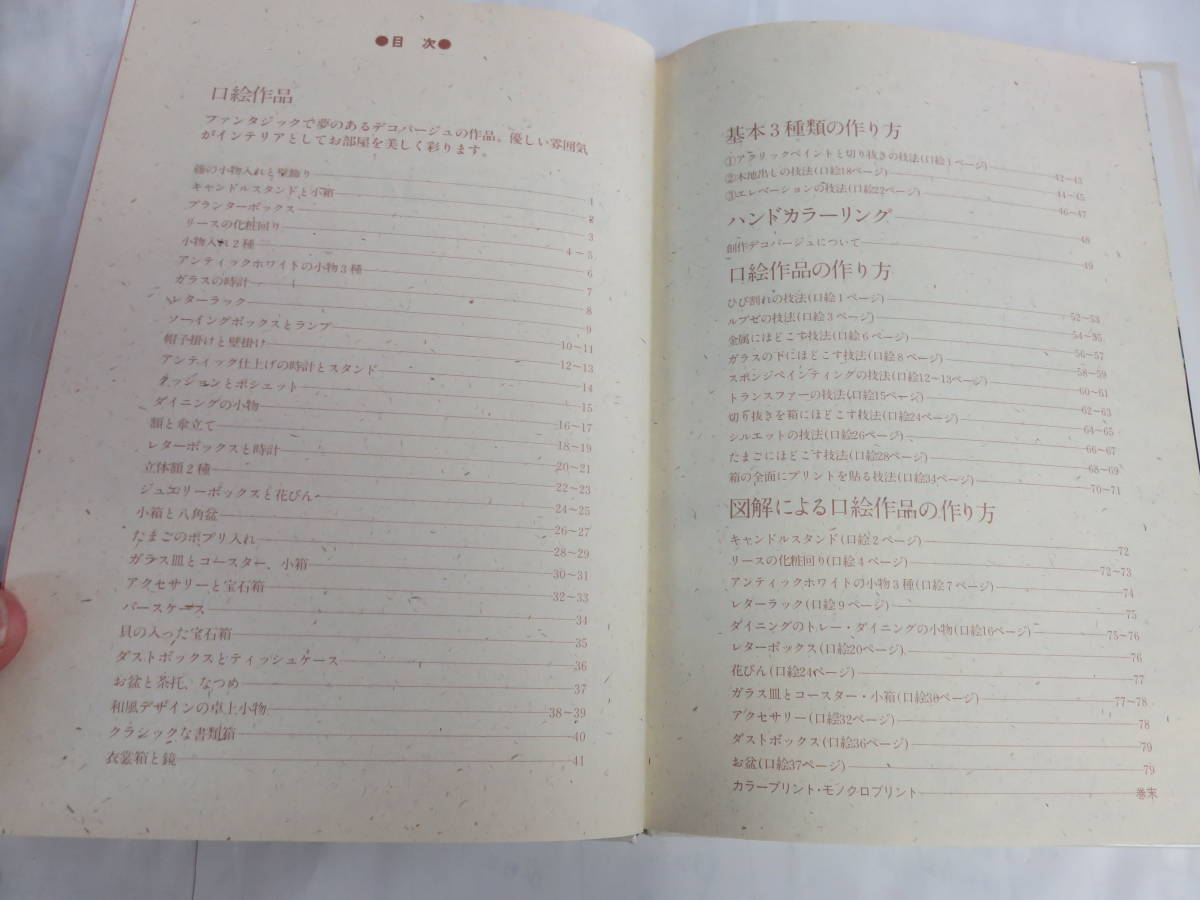 ●目 次●
口絵作品
ファンタジックで夢のあるデコパージュの作品。優しい雰囲気
がインテリアとしてお部屋を美しく彩ります。
の小物入れと壁飾り 1
キャンドルスタンドと小箱 2
プランターボックス 3
リースの化粧回り 4～5
小物入れ2種 6
アンティックホワイトの小物3種 7
ガラスの時計 8
レターラック 9
ソーイングボックスとランプ 10～11
帽子掛けと壁掛け 12～13
アンティック仕上げの時計とスタンド 14
クッションとポシェット 15
ダイニングの小物 16～17
額と傘立て 18～19
レターボックスと時計 20～21
立体額2種 22～23
ジュエリーボックスと花びん 24～25
小箱と八角盆 26～27
たまごのポプリ入れ 28～29
ガラス皿とコースター、小箱 30～31
アクセサリーと宝石箱 32～33
パースケース 34
貝の入った宝石箱 35
ダストボックスとティッシュケース 36
お盆と茶托、なつめ 37
和風デザインの卓上小物 38～39
クラシックな書類箱 40
衣裳箱と鏡 41
基本3種類の作り方
①アクリックペイントと切り抜きの技法(口絵1ページ) 42～43
②木地出しの技法(口絵18ページ) 44～45
③エレベーションの技法(口絵22ページ) 46～47
ハンドカラーリング 48
創作デコパージュについて 49
口絵作品の作り方
ひび割れの技法(口絵1ページ) 52～53
ルプゼの技法(口絵3ページ) 54～55
金属にほどこす技法(口絵6ページ) 56～57
ガラスの下にほどこす技法(口絵8ページ) 58～59
スポンジペインティングの技法(口絵12～13ページ) 60～61
トランスファーの技法(口絵15ページ) 62～63
切り抜きを箱にほどこす技法(口絵24ページ) 64～65
シルエットの技法(口絵26ページ) 66～67
たまごにほどこす技法(口絵28ページ) 68～69
箱の全面にプリントを貼る技法(口絵34ページ) 70～71
図解による口絵作品の作り方
キャンドルスタンド(口絵2ページ) 72
リースの化粧回り(口絵4ページ) 72～73
アンティックホワイトの小物3種(口絵7ページ) 74
レターラック(口絵9ページ) 75
ダイニングのトレー・ダイニングの小物(口絵16ページ) 75～76
レターボックス(口絵20ページ) 76
花びん(口絵24ページ) 77
ガラス皿とコースター・小箱(口絵30ページ) 77～78
アクセサリー(口絵32ページ) 78
ダストボックス(口絵36ページ) 79
お盆(口絵37ページ) 79
カラープリント・モノクロプリント 巻末